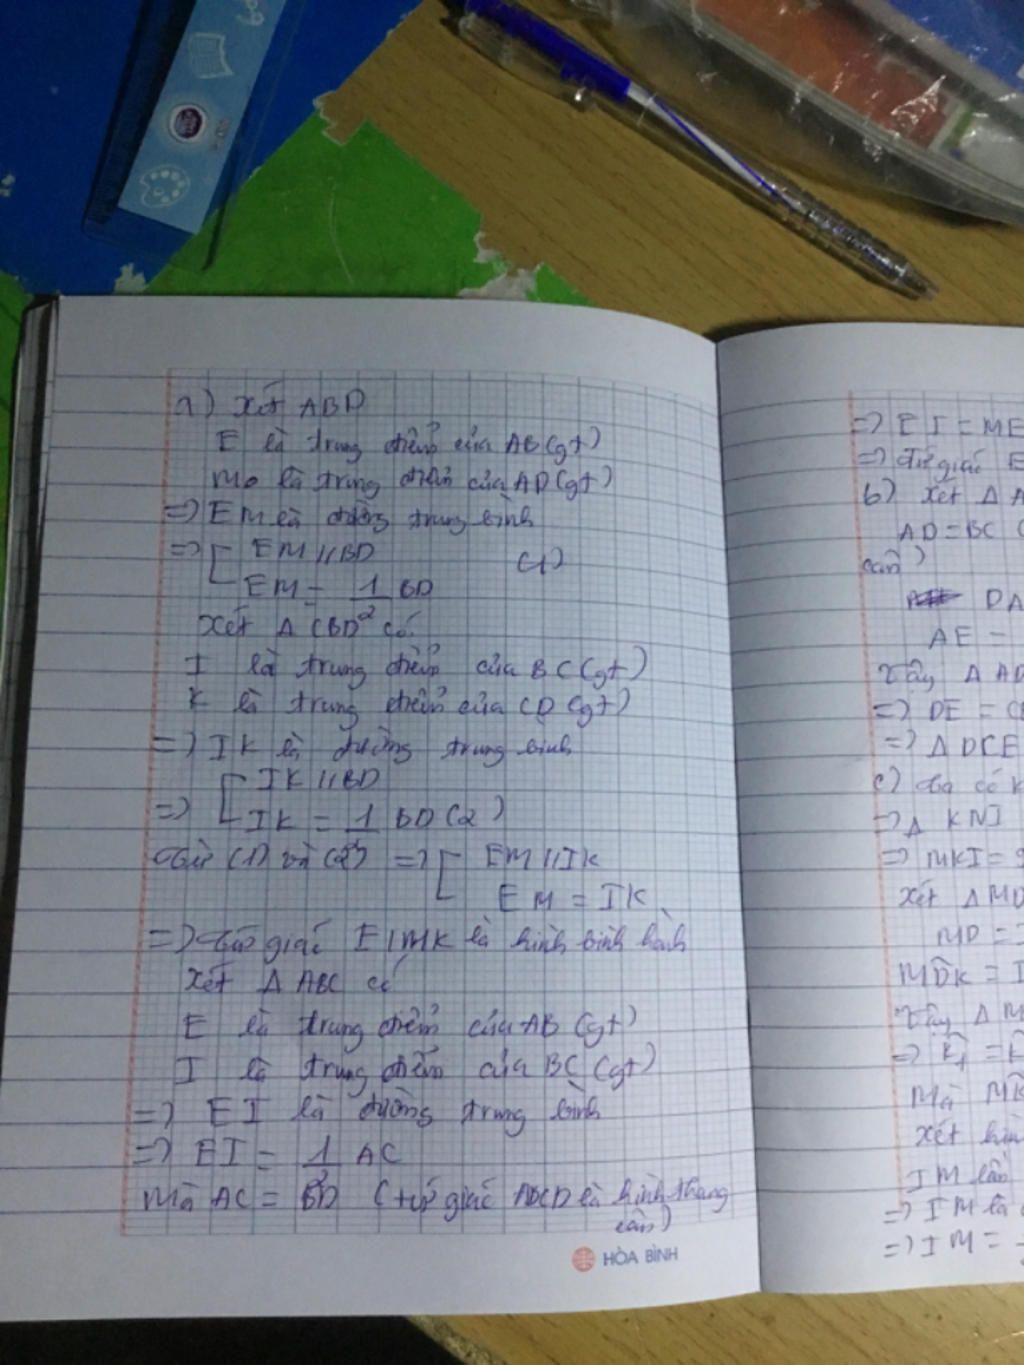 a) Xét ABD
E là trung điểm của AB (gt)
M là trung điểm của AD (gt)
=> EM là đường trung bình
=> [ EM // BD (1)
EM = 1/2 BD
Xét Δ CBD có:
I là trung điểm của BC (gt)
K là trung điểm của CD (gt)
=> IK là đường trung bình
=> [ IK // BD
IK = 1/2 BD (2)
Từ (1) và (2) => [ EM // IK
EM = IK
=> Tứ giác EIMK là hình bình hành
Xét Δ ABC có
E là trung điểm của AB (gt)
I là trung điểm của BC (gt)
=> EI là đường trung bình
=> EI = 1/2 AC
Mà AC = BD (tứ giác ABCD là hình thang
cân)
HÒA BÌNH
=> EI = ME
=> tứ giác E
b) Xét Δ A
AD = BC (
cân)
DA
AE =
Vậy Δ AD
=> DE = C
=> Δ DCE
c) Ta có K
=> Δ KNI
=> MKI =
Xét Δ MD
MD = I
MDK = I
Vậy Δ M
=> K1 = K
Mà MK
Xét hìn
IM lần
=> IM là
=> IM =